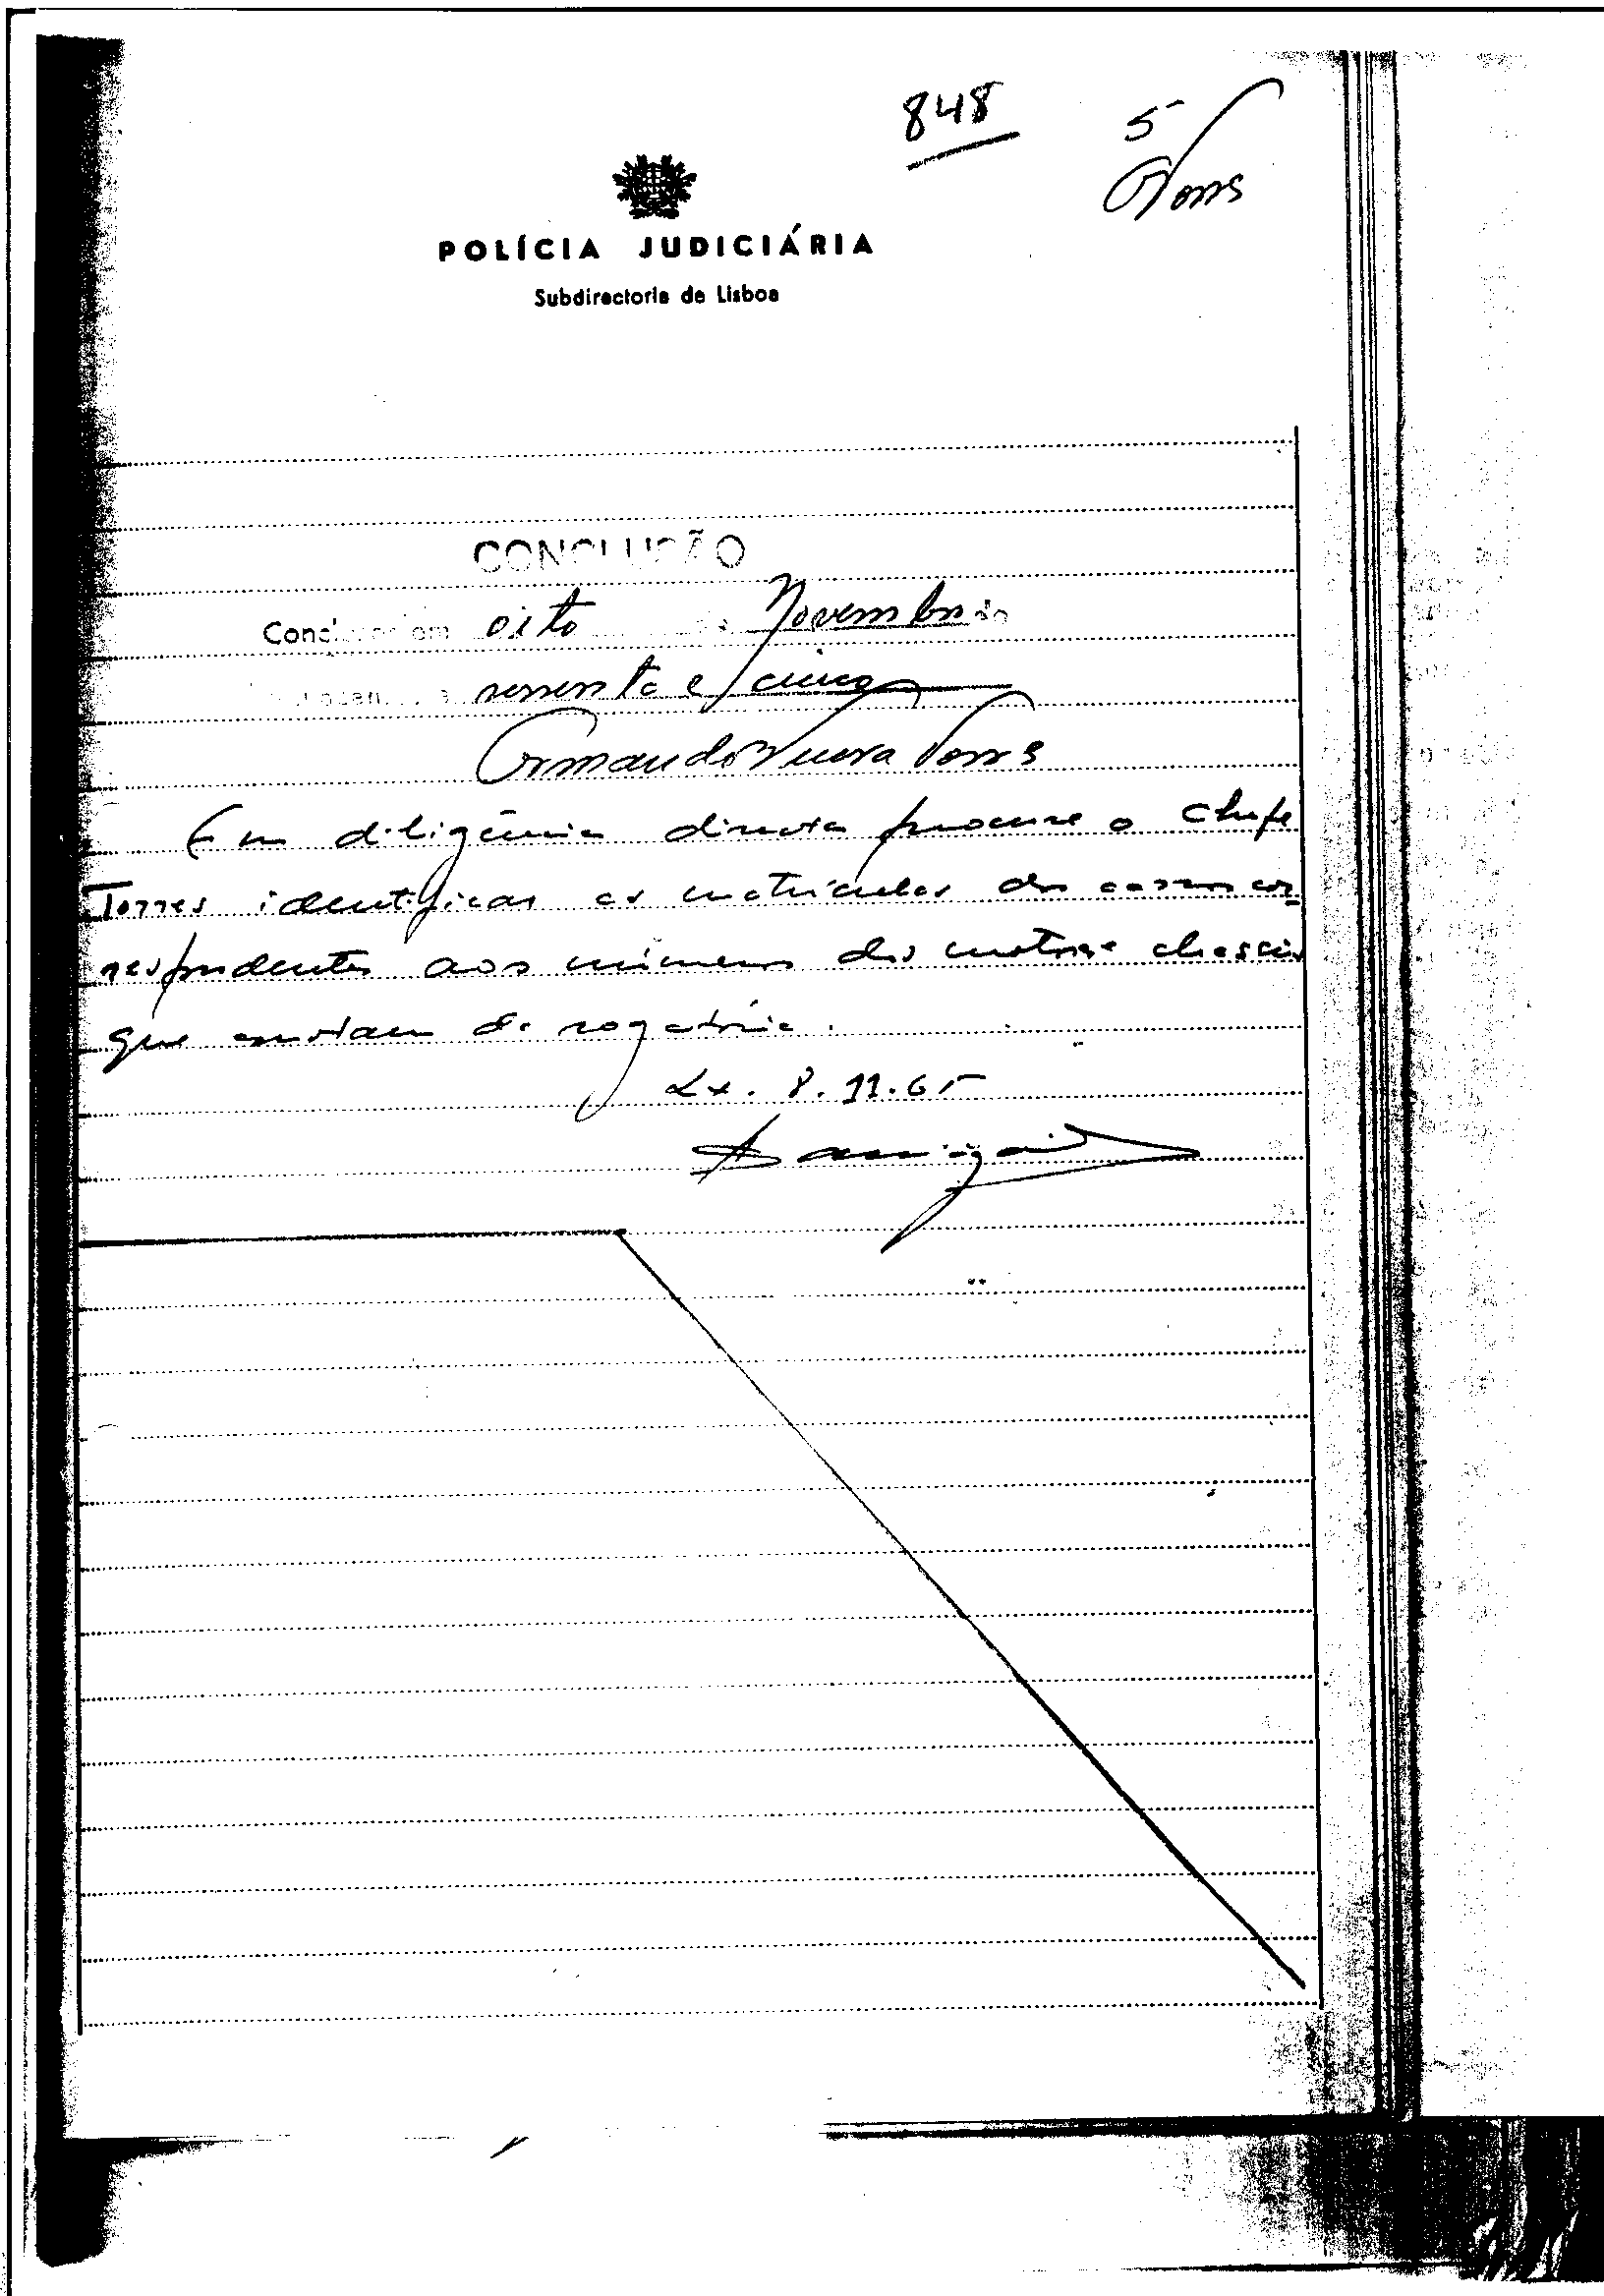 848
5
Torres
POLÍCIA JUDICIÁRIA
Subdirectoria de Lisboa
CONCLUSÃO
em oito de Novembro de
e sessenta e cinco
Armando Torres
Em diligência directa procure o Chefe
Torres identificar as matrículas dos carros cor-
respondentes aos números dos motor e chassis
que constam da rogatória.
Lx. 8.11.65